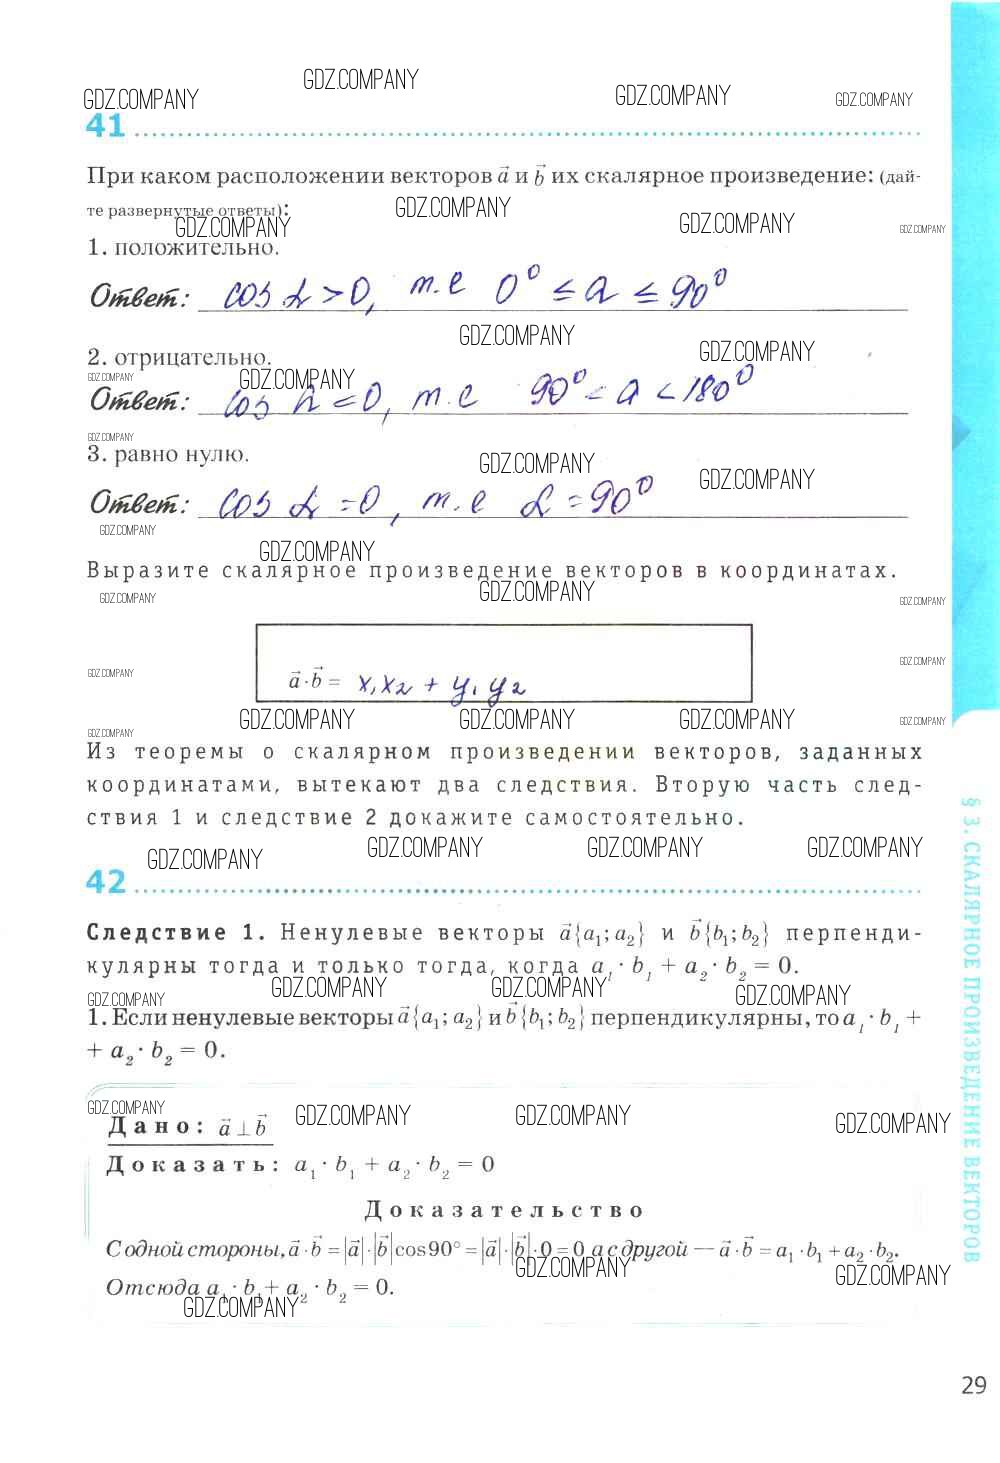 GDZ.COMPANY GDZ.COMPANY GDZ.COMPANY GDZ.COMPANY
41
При каком расположении векторов a⃗ и b⃗ их скалярное произведение: (дай-
те развернутые ответы):
GDZ.COMPANY GDZ.COMPANY GDZ.COMPANY GDZ.COMPANY
1. положительно.
Ответ: cos α > 0, т.е 0° ≤ a ≤ 90°
GDZ.COMPANY GDZ.COMPANY
2. отрицательно.
GDZ.COMPANY GDZ.COMPANY
Ответ: cos α < 0, т.е 90° < a < 180°
GDZ.COMPANY
3. равно нулю.
GDZ.COMPANY GDZ.COMPANY
Ответ: cos α = 0, т.е α = 90°
GDZ.COMPANY GDZ.COMPANY
Выразите скалярное произведение векторов в координатах.
GDZ.COMPANY GDZ.COMPANY GDZ.COMPANY
GDZ.COMPANY GDZ.COMPANY
a⃗·b⃗ = x₁x₂ + y₁y₂
GDZ.COMPANY GDZ.COMPANY GDZ.COMPANY GDZ.COMPANY GDZ.COMPANY
Из теоремы о скалярном произведении векторов, заданных
координатами, вытекают два следствия. Вторую часть след-
ствия 1 и следствие 2 докажите самостоятельно.
GDZ.COMPANY GDZ.COMPANY GDZ.COMPANY GDZ.COMPANY
42
Следствие 1. Ненулевые векторы a⃗{a₁; a₂} и b⃗{b₁; b₂} перпенди-
кулярны тогда и только тогда, когда a₁ · b₁ + a₂ · b₂ = 0.
GDZ.COMPANY GDZ.COMPANY GDZ.COMPANY GDZ.COMPANY
1. Если ненулевые векторы a⃗{a₁; a₂} и b⃗{b₁; b₂} перпендикулярны, то a₁ · b₁ +
+ a₂ · b₂ = 0.
GDZ.COMPANY GDZ.COMPANY GDZ.COMPANY GDZ.COMPANY
Дано: a⃗ ⊥ b⃗
Доказать: a₁ · b₁ + a₂ · b₂ = 0
Доказательство
С одной стороны, a⃗ · b⃗ = |a⃗| · |b⃗| cos 90° = |a⃗| · |b⃗| · 0 = 0 а с другой — a⃗ · b⃗ = a₁ · b₁ + a₂ · b₂.
GDZ.COMPANY GDZ.COMPANY
Отсюда a₁ · b₁ + a₂ · b₂ = 0.
GDZ.COMPANY
§ 3. СКАЛЯРНОЕ ПРОИЗВЕДЕНИЕ ВЕКТОРОВ
29